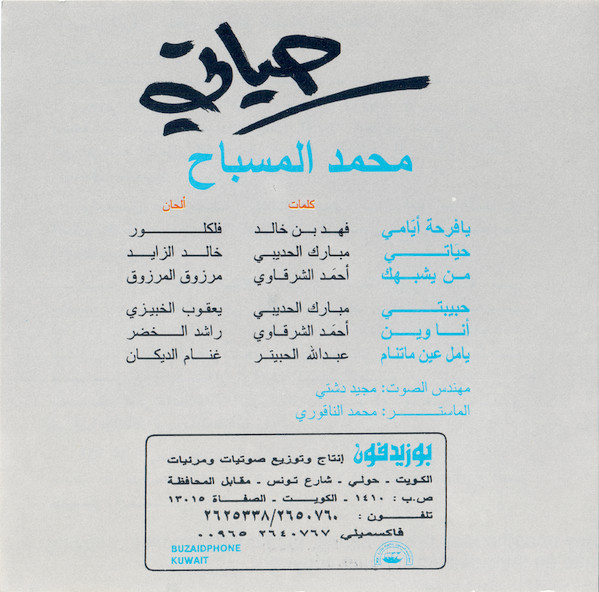 حياتي
محمد المسباح
كلمات ألحان
يافرحة أيّامي فهد بن خالد فلكلور
حيَاتي مبارك الحديبي خالد الزايد
من يشبهك أحمَد الشرقاوي مرزوق المرزوق
حبيبتي مبارك الحديبي يعقوب الخبيزي
أنا وين أحمَد الشرقاوي راشد الخضر
يامل عين ماتنام عبدالله الحبيتر غنام الديكان
مهندس الصوت: مجيد دشتي
الماستر: محمد الناقوري
بوزيدفون إنتاج وتوزيع صوتيات ومرئيات
الكويت - حولي - شارع تونس - مقابل المحافظة
ص.ب: ١٤١٠ - الكويت - الصفاة ١٣٠١٥
تلفون: ٢٦٢٥٣٣٨/٢٦٥٠٧٦٠
فاكسميلي ٢٦٤٠٧٦٧ ٠٠٩٦٥
BUZAIDPHONE
KUWAIT